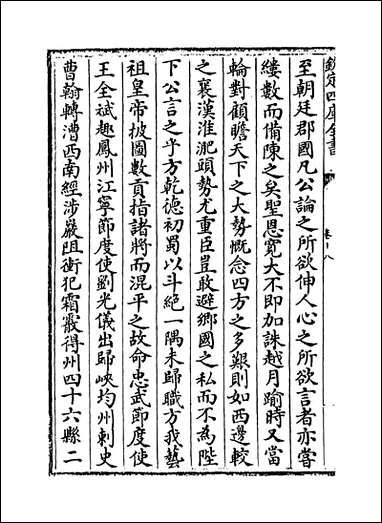 欽定四庫全書
卷十八
至朝廷郡國凡公論之所欲伸人心之所欲言者亦嘗
縷數而備陳之矣聖恩寬大不即加誅越月踰時又當
輪對顧瞻天下之大勢慨念四方之多艱則如西邊較
之襄漢淮淝頭勢尤重臣豈敢避鄉國之私而不為陛
下公言之乎方乾德初蜀以斗絕一隅未歸職方我藝
祖皇帝披圖數貢指諸將而混平之故命忠武節度使
王全斌趣鳳州江寧節度使劉光儀出歸峽均州刺史
曹翰轉漕西南經涉巖阻衝犯霜霰得州四十六縣二